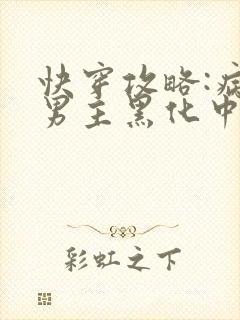 快穿攻略:病
男主黑化中
彩虹之下